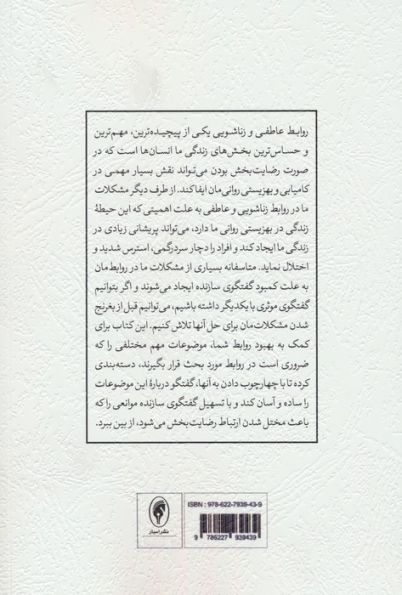 روابط عاطفی و زناشویی یکی از پیچیده‌ترین، مهم‌ترین
و حساس‌ترین بخش‌های زندگی ما انسان‌ها است که در
صورت رضایت‌بخش بودن می‌تواند نقش بسیار مهمی در
کامیابی و بهزیستی روانی‌مان ایفا کند. از طرف دیگر مشکلات
ما در روابط زناشویی و عاطفی به علت اهمیتی که این حیطهٔ
زندگی در بهزیستی روانی ما دارد، می‌تواند پریشانی زیادی در
زندگی ما ایجاد کند و افراد را دچار سردرگمی، استرس شدید و
اختلال نماید. متاسفانه بسیاری از مشکلات ما در روابط‌مان
به علت کمبود گفتگوی سازنده ایجاد می‌شوند و اگر بتوانیم
گفتگوی موثری با یکدیگر داشته باشیم، می‌توانیم قبل از بغرنج
شدن مشکلات‌مان برای حل آنها تلاش کنیم. این کتاب برای
کمک به بهبود روابط شما، موضوعات مهم مختلفی را که
ضروری است در روابط مورد بحث قرار بگیرند، دسته‌بندی
کرده تا با چهارچوب دادن به آنها، گفتگو دربارهٔ این موضوعات
را ساده و آسان کند و با تسهیل گفتگوی سازنده موانعی را که
باعث مختل شدن ارتباط رضایت‌بخش می‌شود، از بین ببرد.
ISBN : 978-622-7939-43-9
9 786227 939439